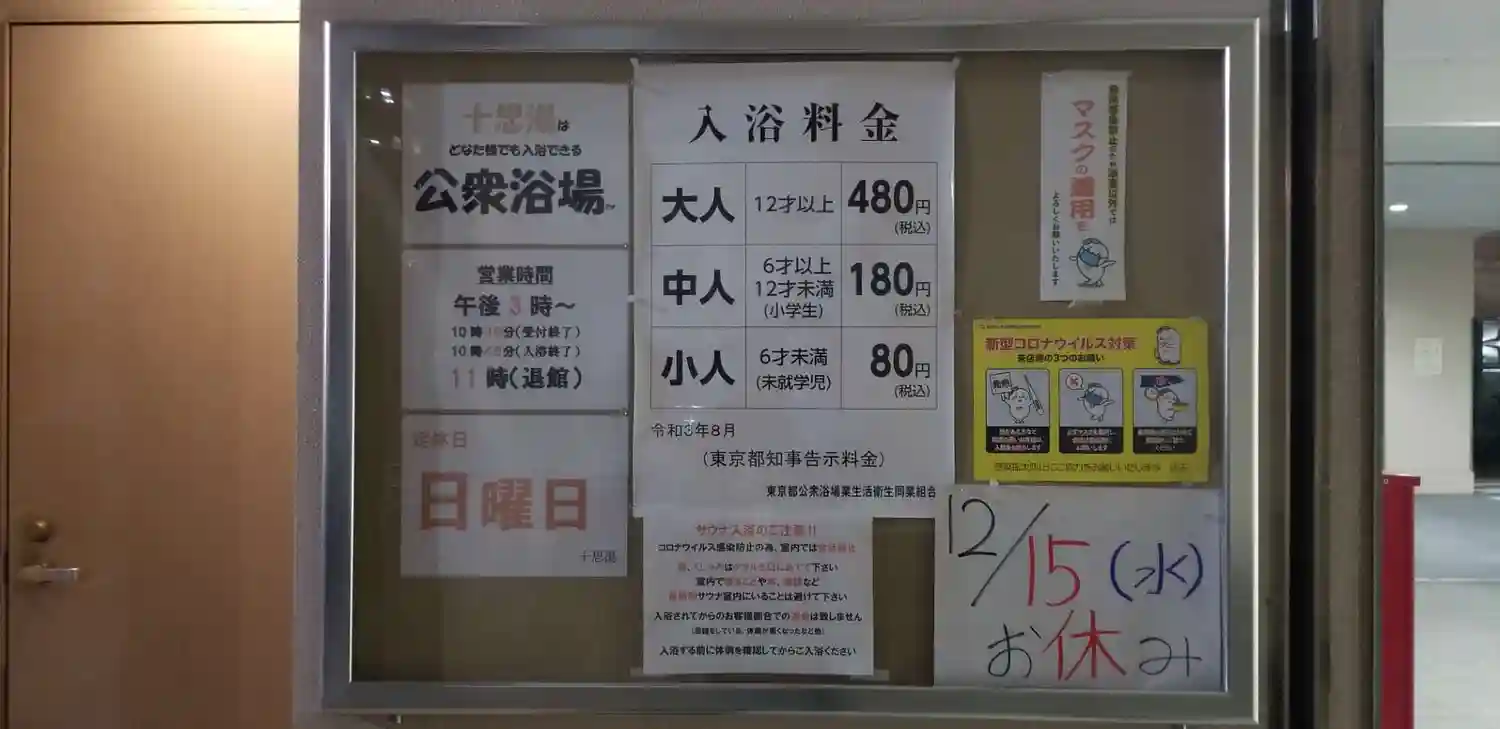 十思湯は
どなた様でも入浴できる
公衆浴場
営業時間
午後3時～
10時 分(受付終了)
10時 分(入浴終了)
11時(退館)
定休日
日曜日
十思湯
入浴料金
大人 12才以上 480円(税込)
中人 6才以上12才未満(小学生) 180円(税込)
小人 6才未満(未就学児) 80円(税込)
令和3年8月
(東京都知事告示料金)
東京都公衆浴場業生活衛生同業組合
サウナ入浴のご注意!!
コロナウイルス感染防止の為、室内では
下さい
室内で
サウナ室内にいることは避けて下さい
入浴されてからのお客様都合での返金は致しません
入浴する前に体調を確認してからご入浴ください
マスクの着用を
よろしくお願いいたします
新型コロナウイルス対策
来店時の3つのお願い
12/15(水)
お休み